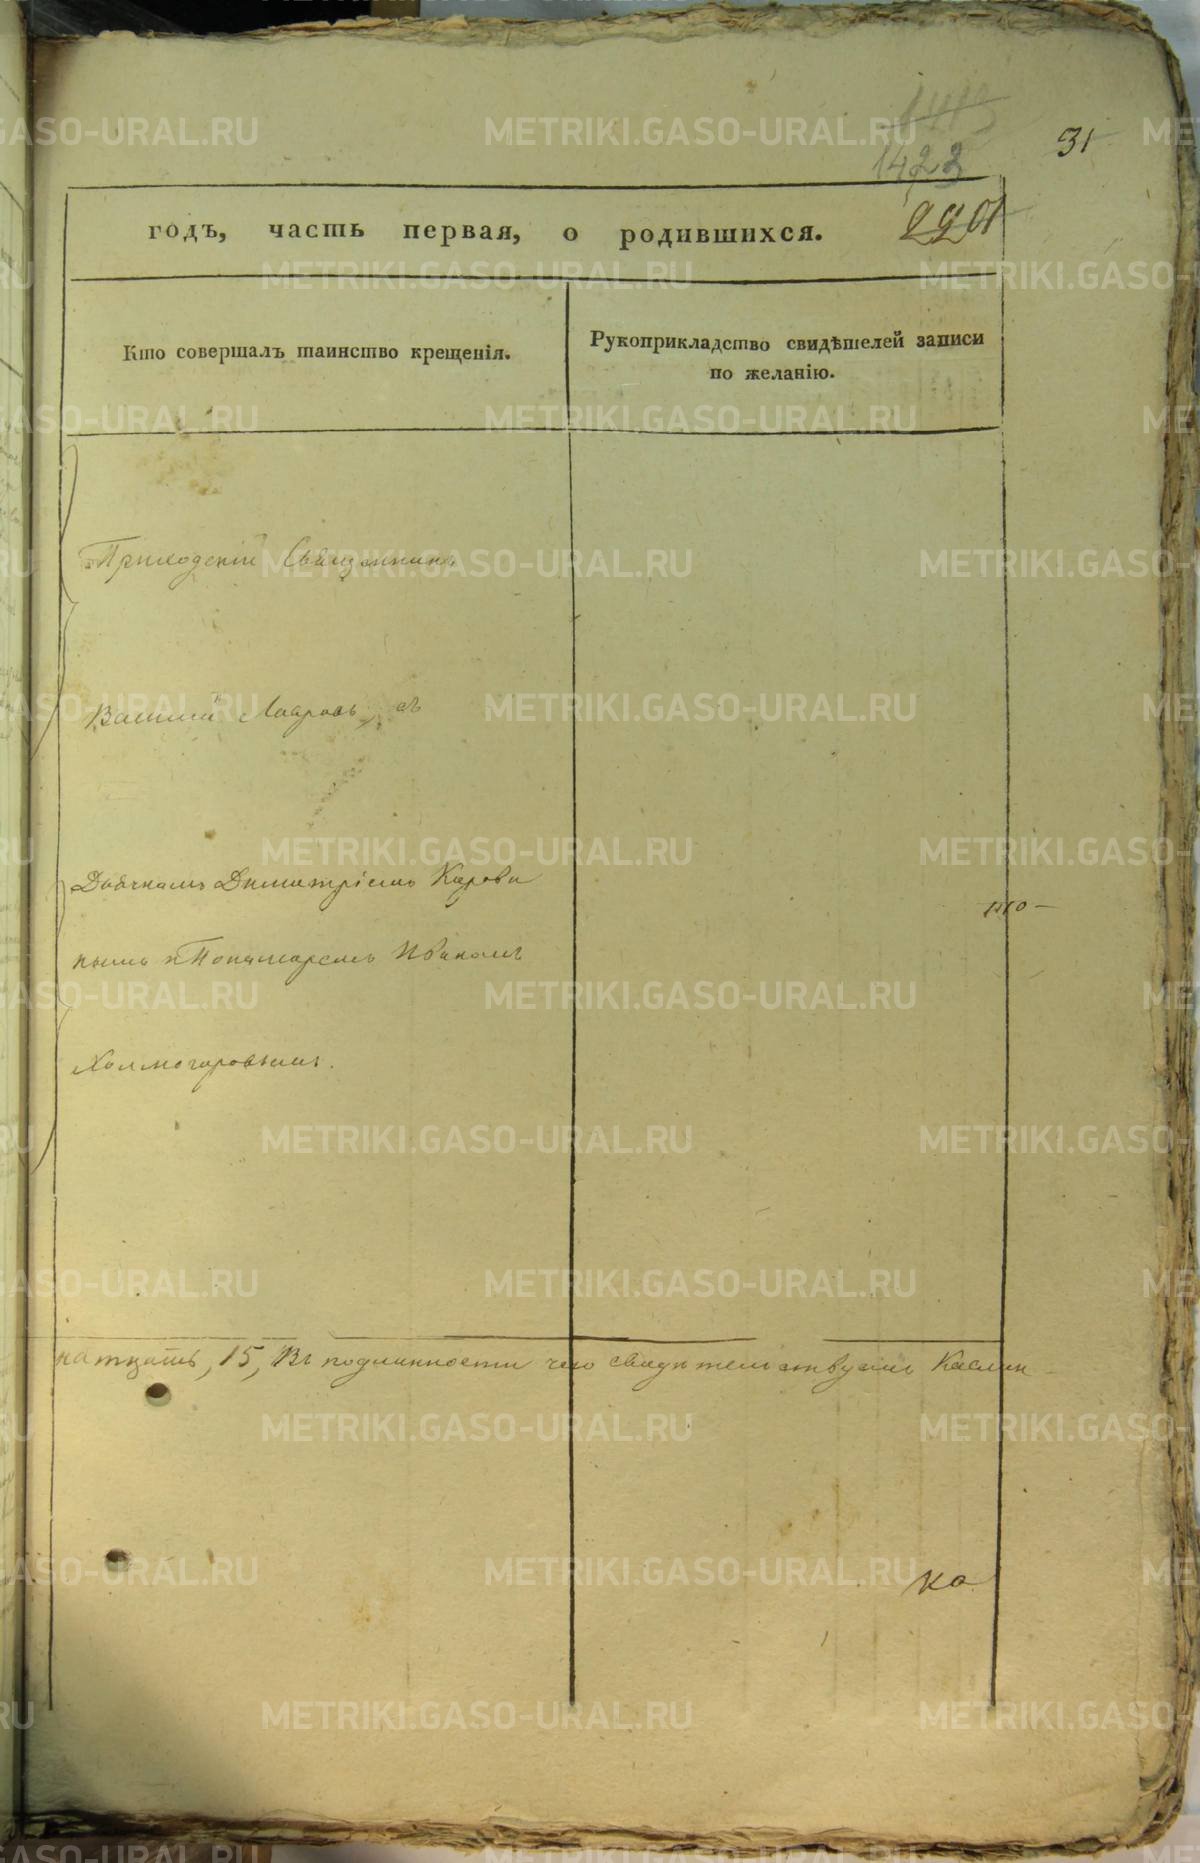 1423
31
годъ, часть первая, о родившихся.
Кто совершалъ таинство крещенія.
Рукоприкладство свидѣтелей записи
по желанію.
Приходскій Священникъ
Василій Лавровъ, съ
Дьячкомъ Димитріемъ Корови
нымъ и Пономаремъ Иваномъ
1110 —
Холмогоровымъ.
натцать, 15, Въ подлинности чего свидѣтельствуемъ Каслин
ко
METRIKI.GASO-URAL.RU